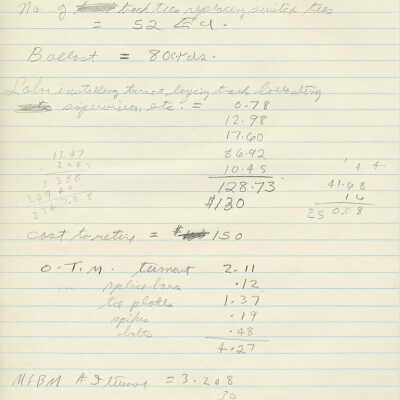 No. of track ties replacing switch ties
= 52 Ea.
Ballast = 80 yds.
Labor installing turnout, laying track ballasting
supervision, etc. = 0.78
12.98
17.60
86.92
10.45
128.73
$130
41.68
16
25 0.08
Cost to retire = $150
O.T.M. turnout 2.11
splice bars .12
tie plates 1.37
spikes .19
bolts .48
4.27
MFBM = 3.208
30